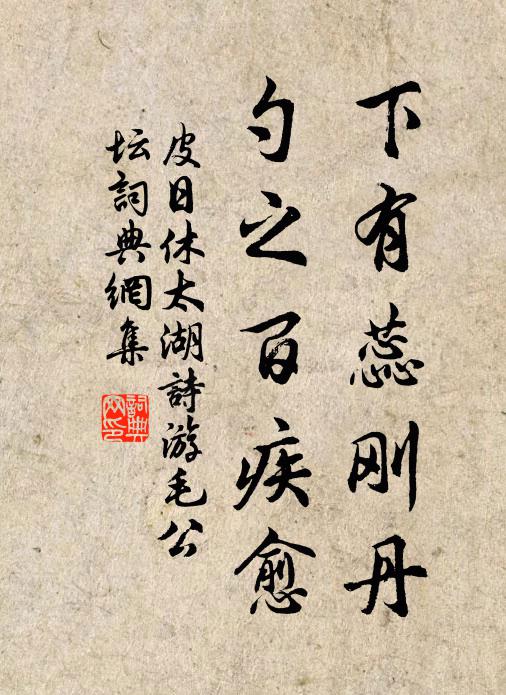 下有蕊刚丹
勺之百疾愈
皮日休太湖詩游毛公
坛詞典網集
詞典网印